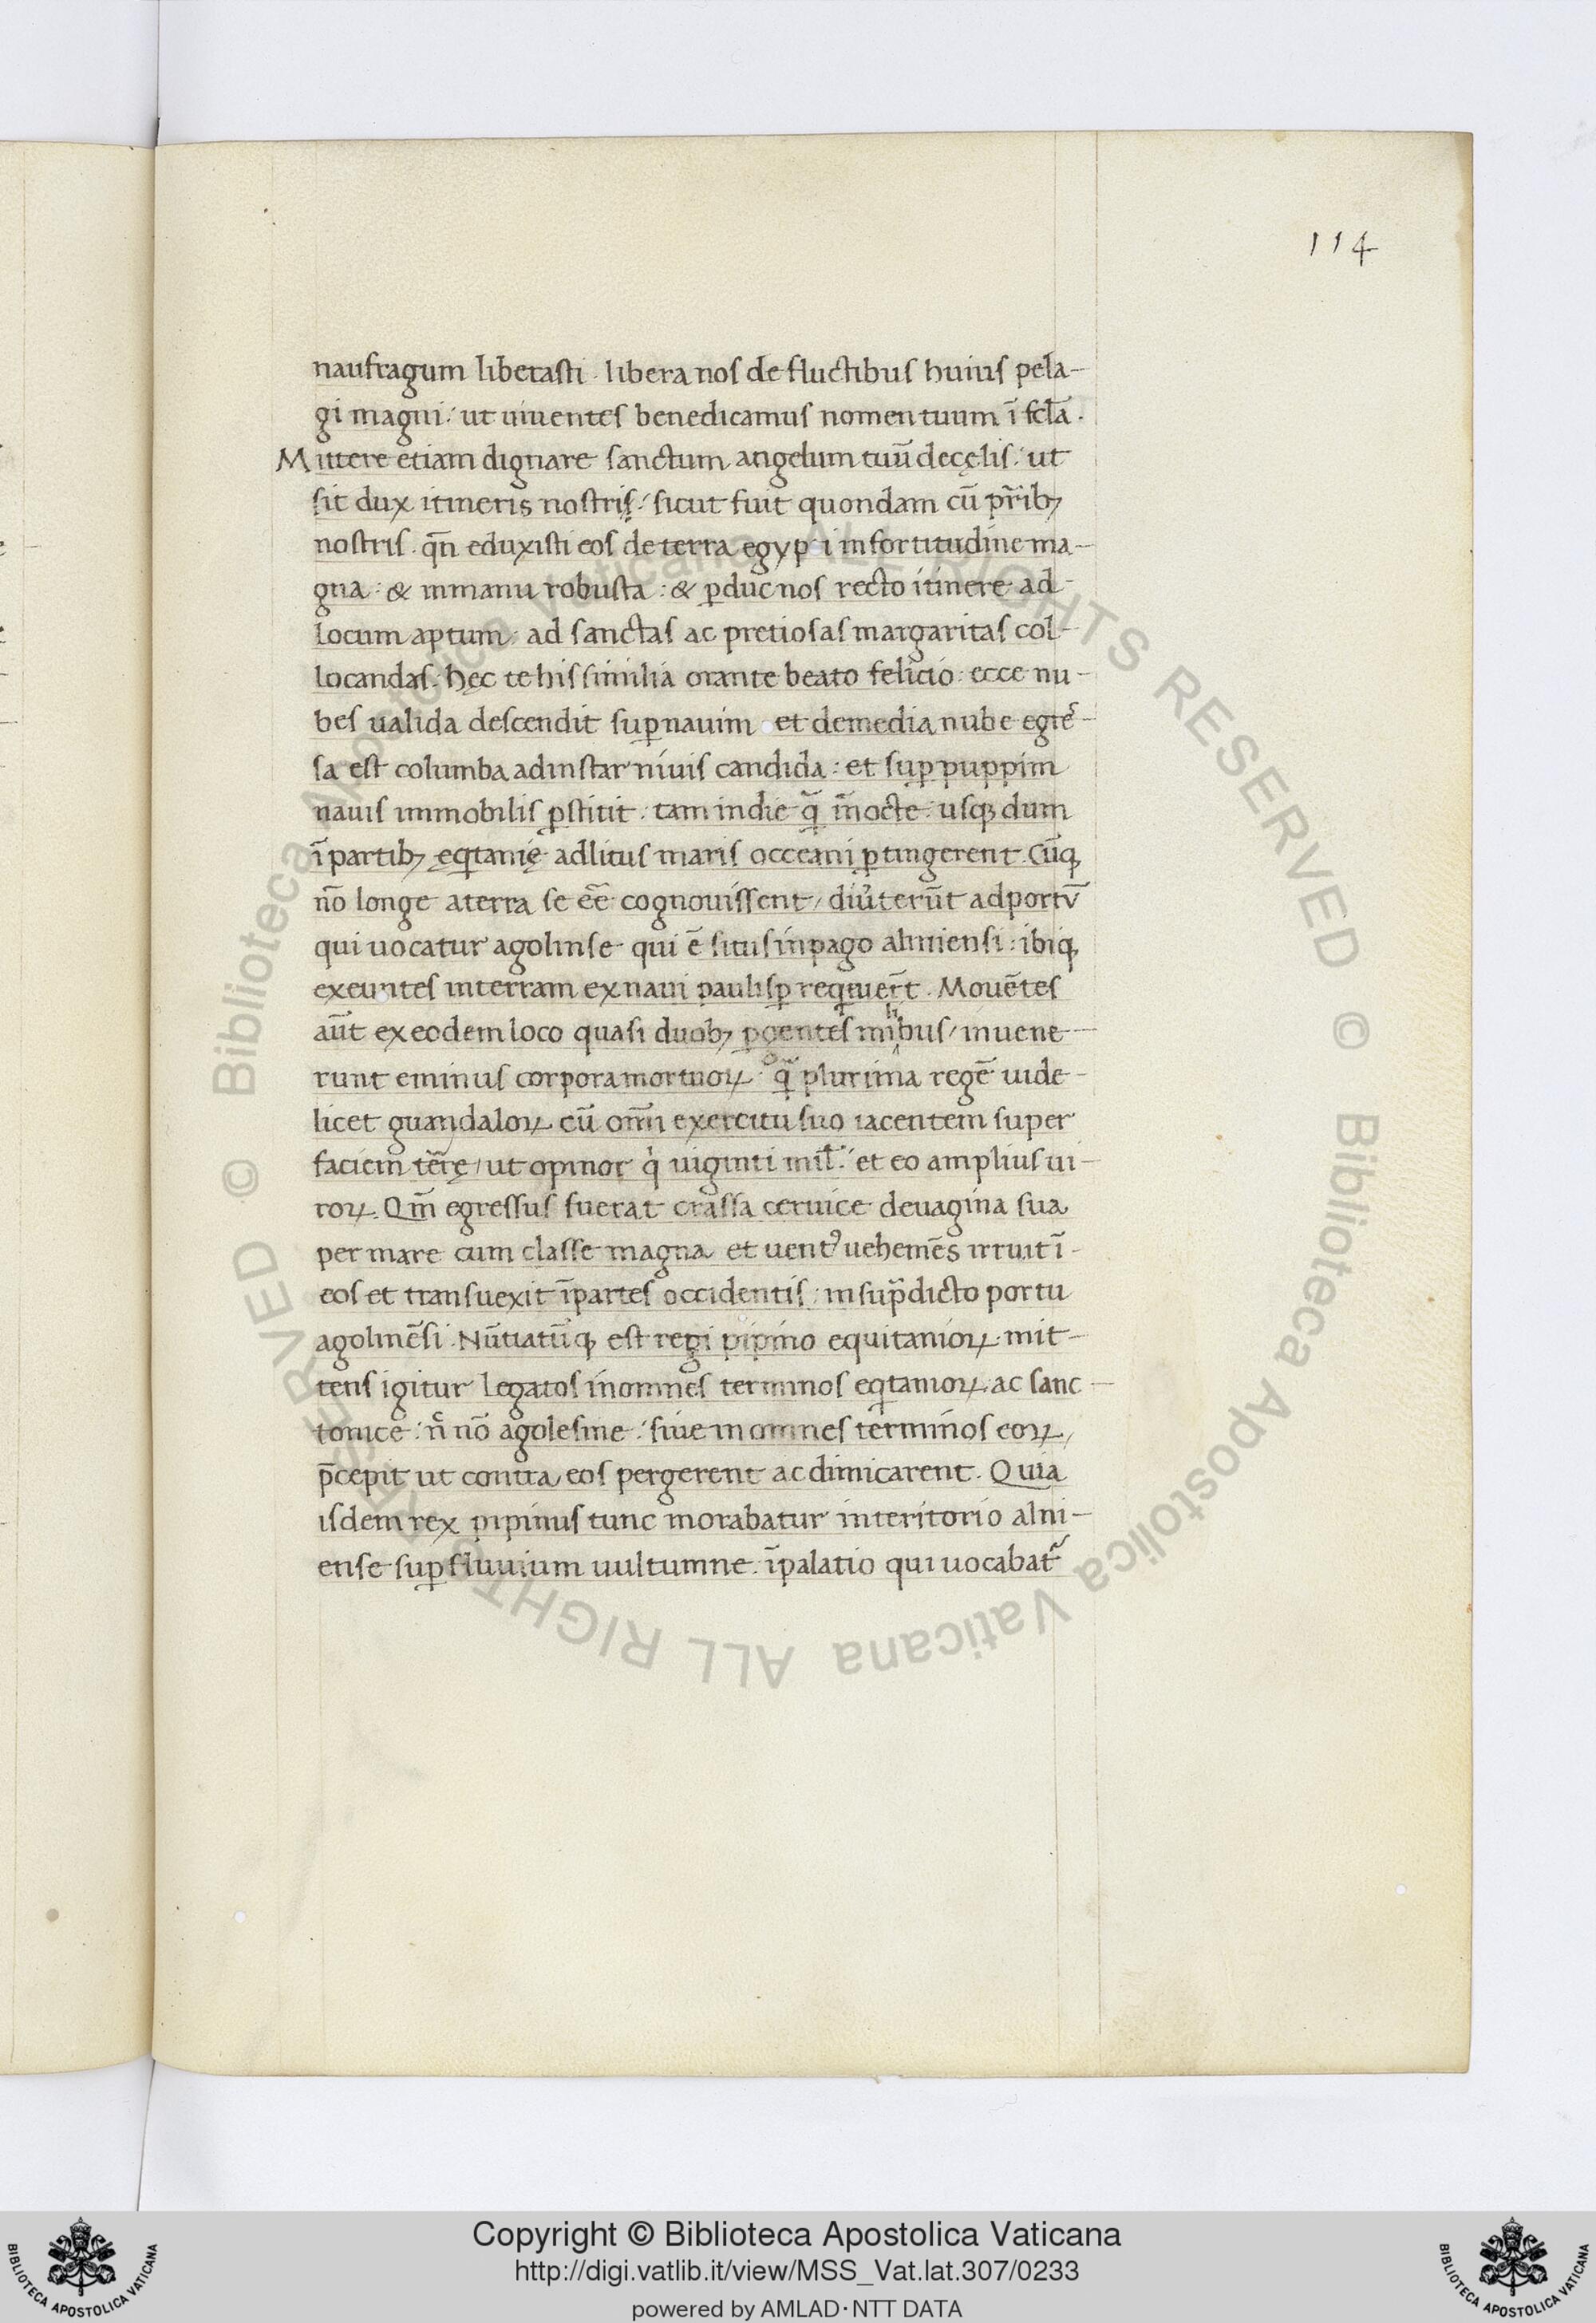 114
naufragum liberasti · libera nos de fluctibus huius pela-
gi magni: ut uiuentes benedicamus nomen tuum ī scła ·
Mittere etiam dignare sanctum angelum tuū decęlis: ut
sit dux itineris nostris: sicut fuit quondam cū pr̄ib;
nostris · qn̄ eduxisti eos de terra egyp i in fortitudine ma-
gna: & inmanu robusta: & ꝑduc nos recto itinere ad
locum aptum: ad sanctas ac pretiosas margaritas col-
locandas: hęc te his similia orante beato felicio: ecce nu-
bes ualida descendit suꝑ nauim et demedia nube egre-
sa est columba adinstar niuis candida: et suꝑ puppim
nauis immobilis ꝑstitit: tam indie q̄ īnocte: usq; dum
ī partib; eqͥtanię adlitus maris occeani ꝑtingerent. Cūq;
nō longe aterra se eē cognouissent, diu̾terūt adportū
qui uocatur agolinse qui ē situs inpago alniensi: ibiq;
exeuntes interram ex naui paulisꝑ reqͥuer̄t. Mouētes
aūt ex eodem loco quasi duob; ꝑgentes mibus, inuene-
runt eminus corpora mortuoꝝ: q̄ plurima regē uide-
licet guandaloꝝ cū om̄i exercitu suo iacentem super
faciem ter̄ę, ut opinor qͥ uiginti mił: et eo amplius ui-
roꝝ. Qm̄ egressus fuerat crassa ceruice deuagina sua
per mare cum classe magna et uentꝰ uehemēs irruit ī
eos et transuexit īpartes occidentis: insup̄dicto portu
agolinēsi. Nūtiatūq; est regi pipino equitanioꝝ. mit-
tens igitur legatos inomnes terminos eqͥtanioꝝ. ac sanc-
tonice: n̾ nō agolesine: siue in omnes terminos eoꝝ,
p̄cepit ut contra eos pergerent ac dimicarent. Quia
isdem rex pipinus tunc morabatur interitorio alni-
ense suꝑ fluuium uultumne. īpalatio qui uocabat᷑
Copyright © Biblioteca Apostolica Vaticana
http://digi.vatlib.it/view/MSS_Vat.lat.307/0233
powered by AMLAD·NTT DATA
BIBLIOTECA APOSTOLICA VATICANA
BIBLIOTECA APOSTOLICA VATICANA